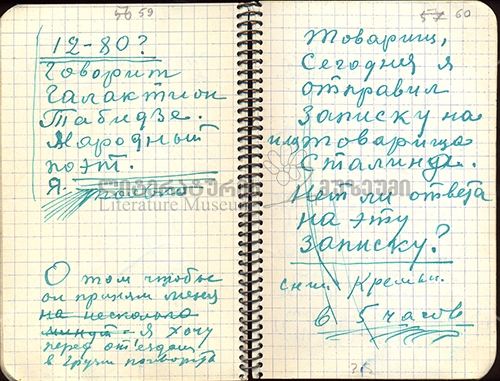 56 59
12-80?
Говорит
Галактион
Табидзе.
Народный
поэт.
Я
О том чтобы
он принял меня
на несколько
минут - я хочу
перед от'ездом
в Грузию поговорить
57 60
Товарищ,
Сегодня я
отправил
Записку на
имя товарища
Сталина.
Нет ли ответа
на эту
Записку?
Кремль.
в 5 часов
ლიტერატურის მუზეუმი
Literature Museum